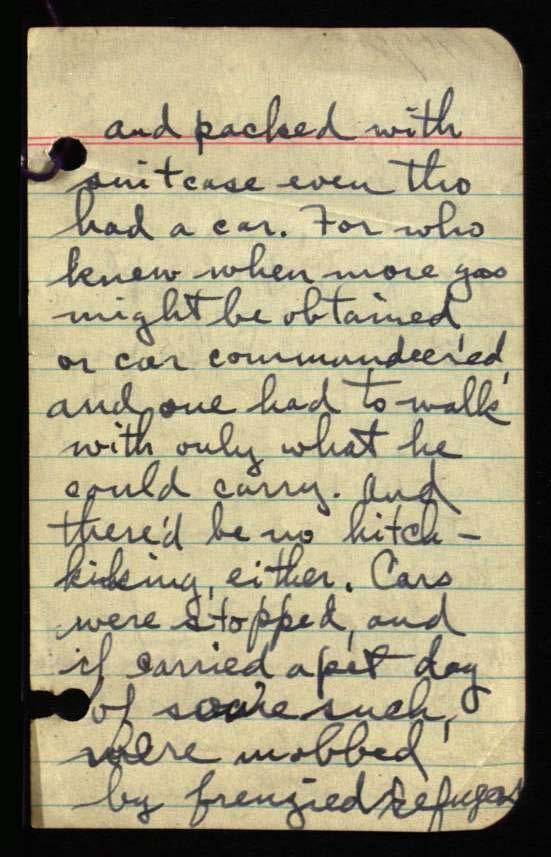 and packed with
suitcase even tho
had a car. For who
knew when more gas
might be obtained
or car commandeer'ed,
and one had to walk
with only what he
could carry. And
there'd be no hitch-
hiking, either. Cars
were stopped, and
if carried a pet dog
of some such,
were mobbed
by frenzied refugees